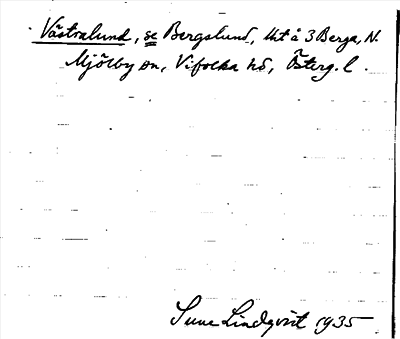 Västralund, se Bergslund, lht å 3 Berga, N.
Mjölby sn, Vifolka hd, Österg. l.
Sune Lindqvist 1935